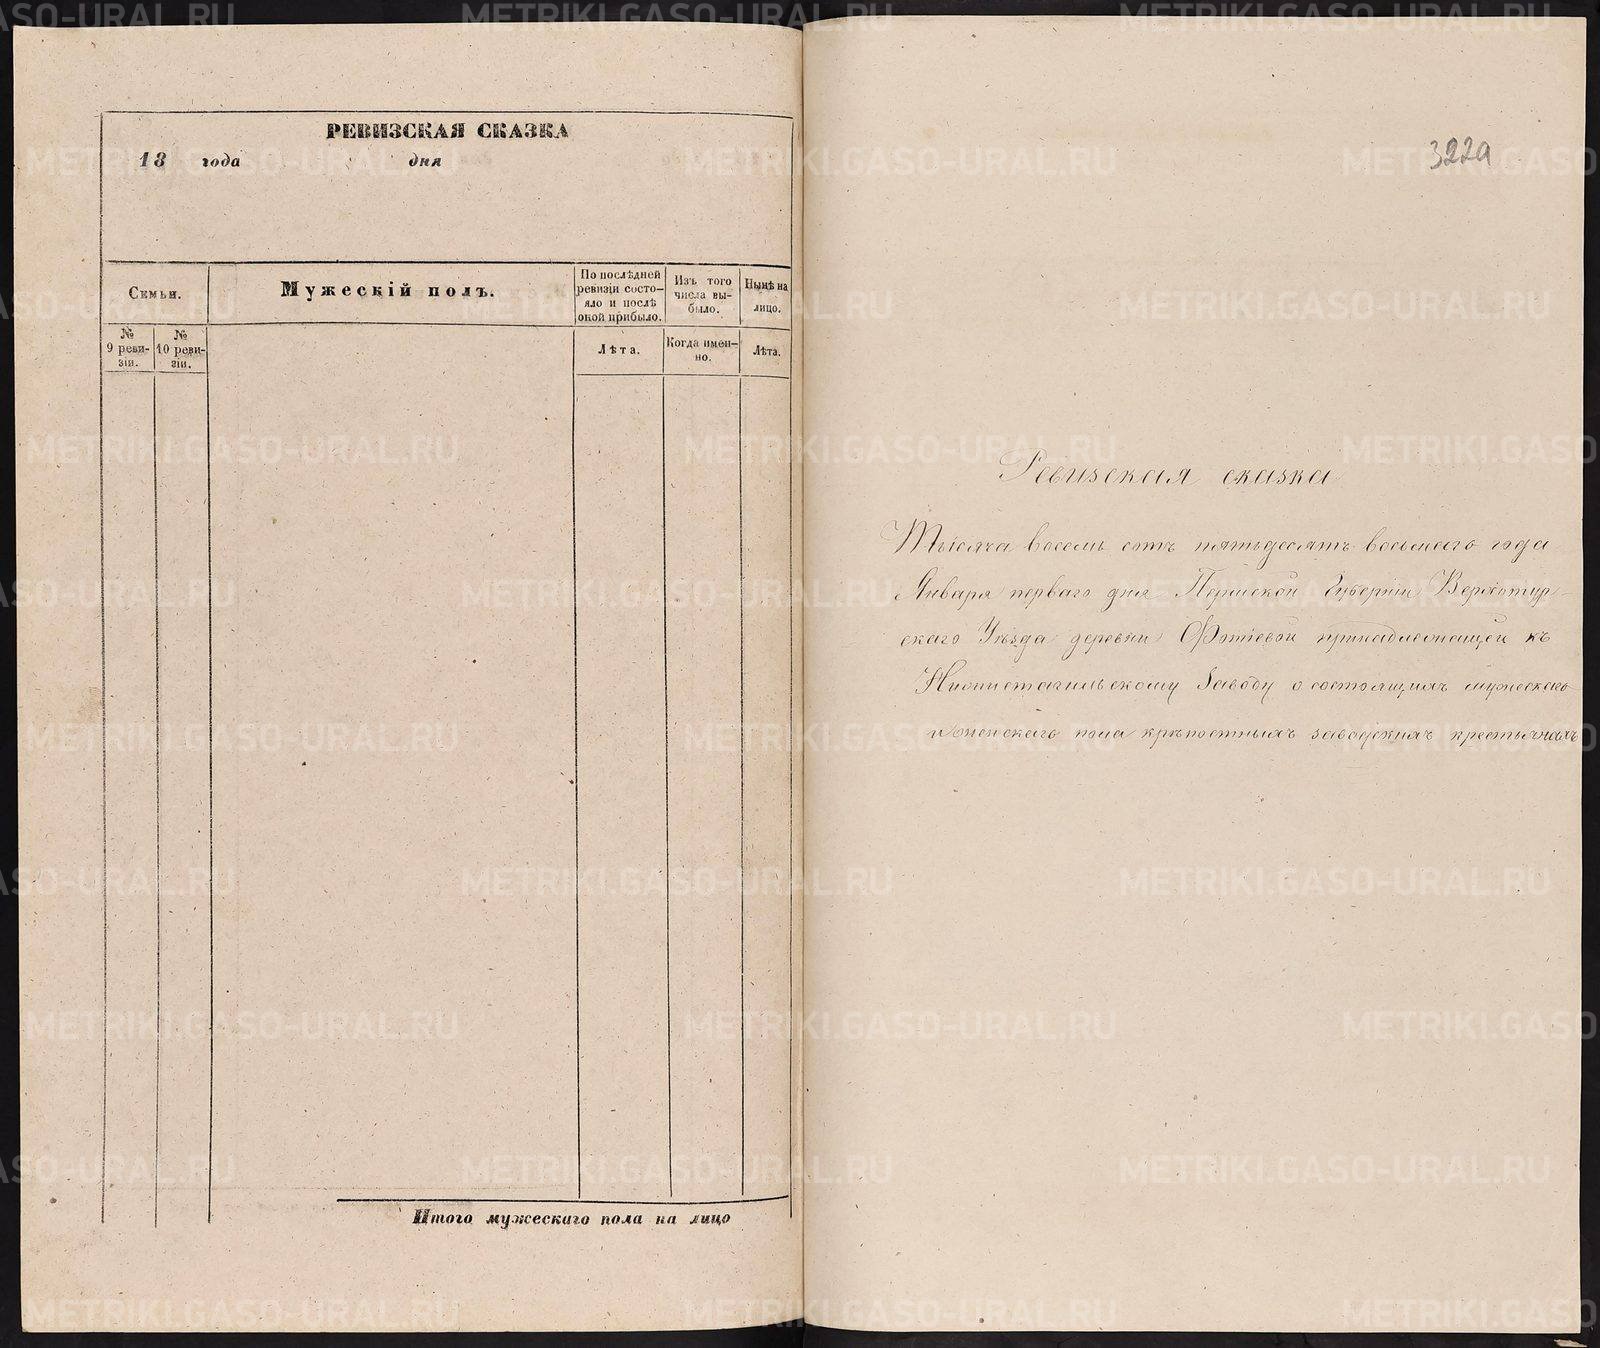 РЕВИЗСКАЯ СКАЗКА
18 года дня
Семьи.
Мужескій полъ.
По послѣдней ревизіи состояло и послѣ оной прибыло.
Изъ того числа выбыло.
Нынѣ на лицо.
№ 9 ревизіи.
№ 10 ревизіи.
Лѣта.
Когда именно.
Лѣта.
Итого мужескаго пола на лицо
322а
Ревизская сказка
Тысяча восемь сотъ пятьдесятъ восьмаго года
Января перваго дня Пермской Губерніи Верхотур-
скаго Уѣзда деревни Фотіевой принадлежащей къ
Нижнетагильскому Заводу о состоящихъ мужескаго
и женскаго пола крѣпостныхъ заводскихъ крестьянахъ
METRIKI.GASO-URAL.RU